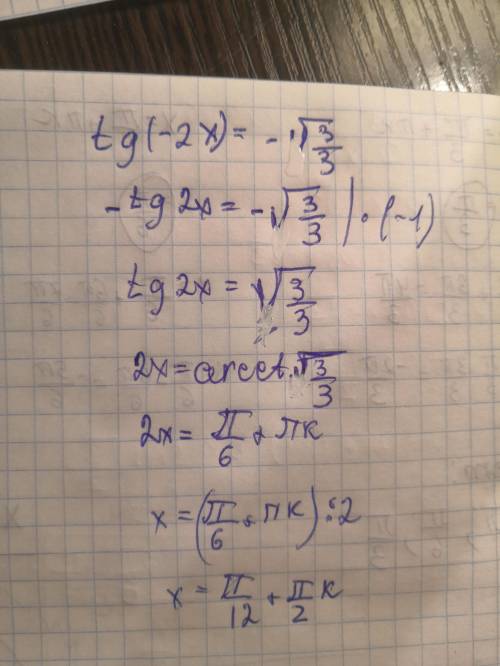 tg(-2x) = -√3/3
-tg 2x = -√3/3 | · (-1)
tg 2x = √3/3
2x = arcct. √3/3
2x = π/6 + πк
x = (π/6 + πк) : 2
x = π/12 + π/2 к